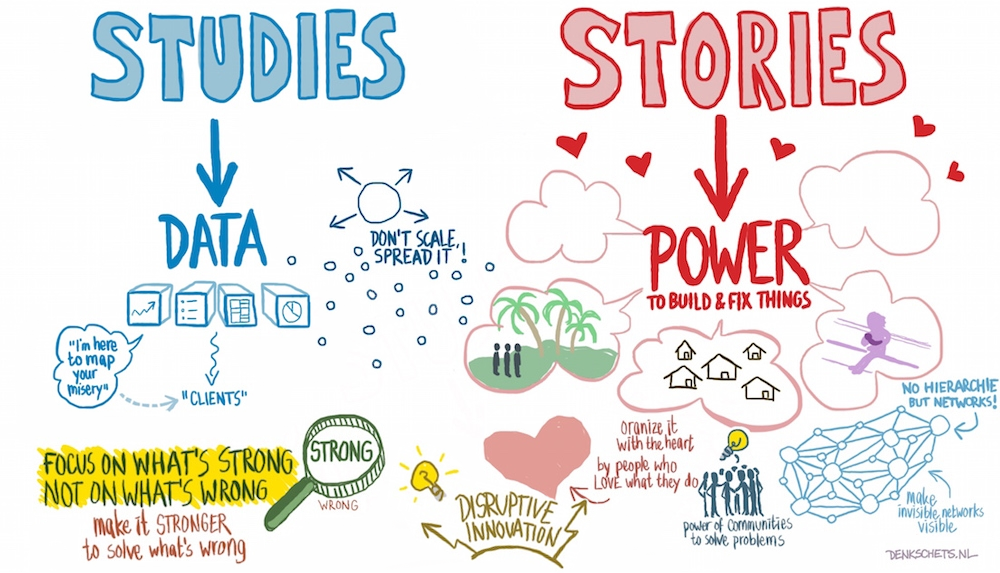 STUDIES
DATA
DON'T SCALE,
SPREAD IT!
"I'm here
to map
your
misery"
"CLIENTS"
FOCUS ON WHAT'S STRONG
NOT ON WHAT'S WRONG
make it STRONGER
to solve what's wrong
STRONG
WRONG
STORIES
POWER
TO BUILD & FIX THINGS
DISRUPTIVE
INNOVATION
Oranize it
with the heart
by people who
LOVE what they do
power of communities
to solve problems
NO HIERARCHIE
BUT NETWORKS!
make
invisible networks
visible
DENKSCHETS.NL